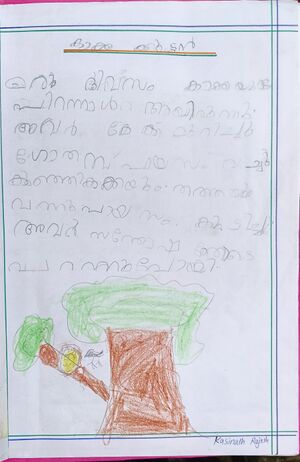 കാക്ക കുട്ടൻ
ഒരു ദിവസം കാക്കയുടെ
പിറന്നാൾ ആയിരുന്നു.
അവർ കേക്ക് മുറിച്ചു
ഗോതമ്പ് പായസം വച്ചു
കുഞ്ഞിക്കാക്കയും തത്തയും
വന്നു പായസം കുടിച്ചു
അവർ സന്തോഷത്തോടെ
പറന്നുപോയി.
Kasinath Rajesh